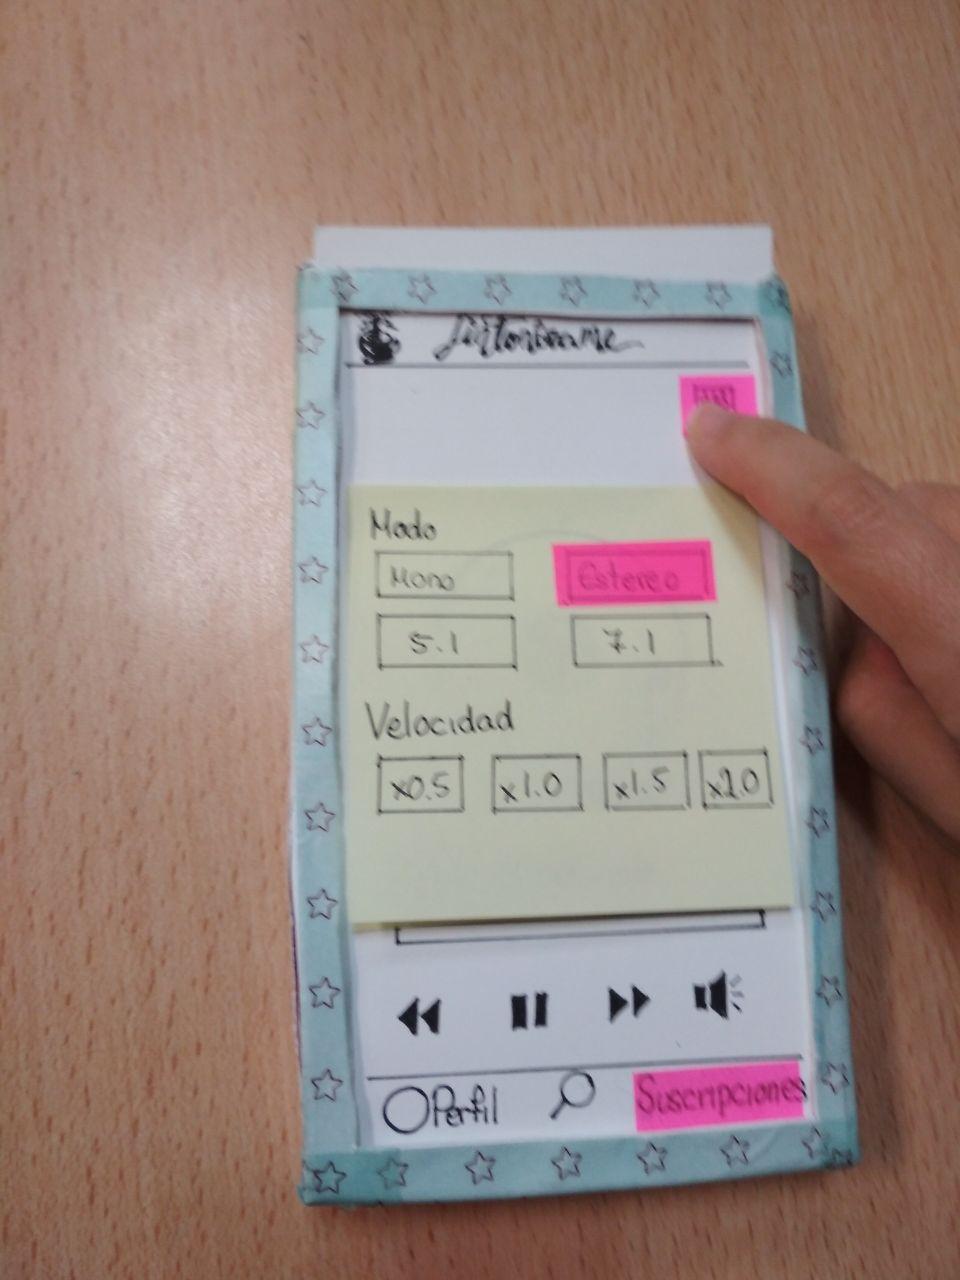 Sintonízame
Modo
Mono Estereo
5.1 7.1
Velocidad
x0.5 x1.0 x1.5 x2.0
Perfil Suscripciones